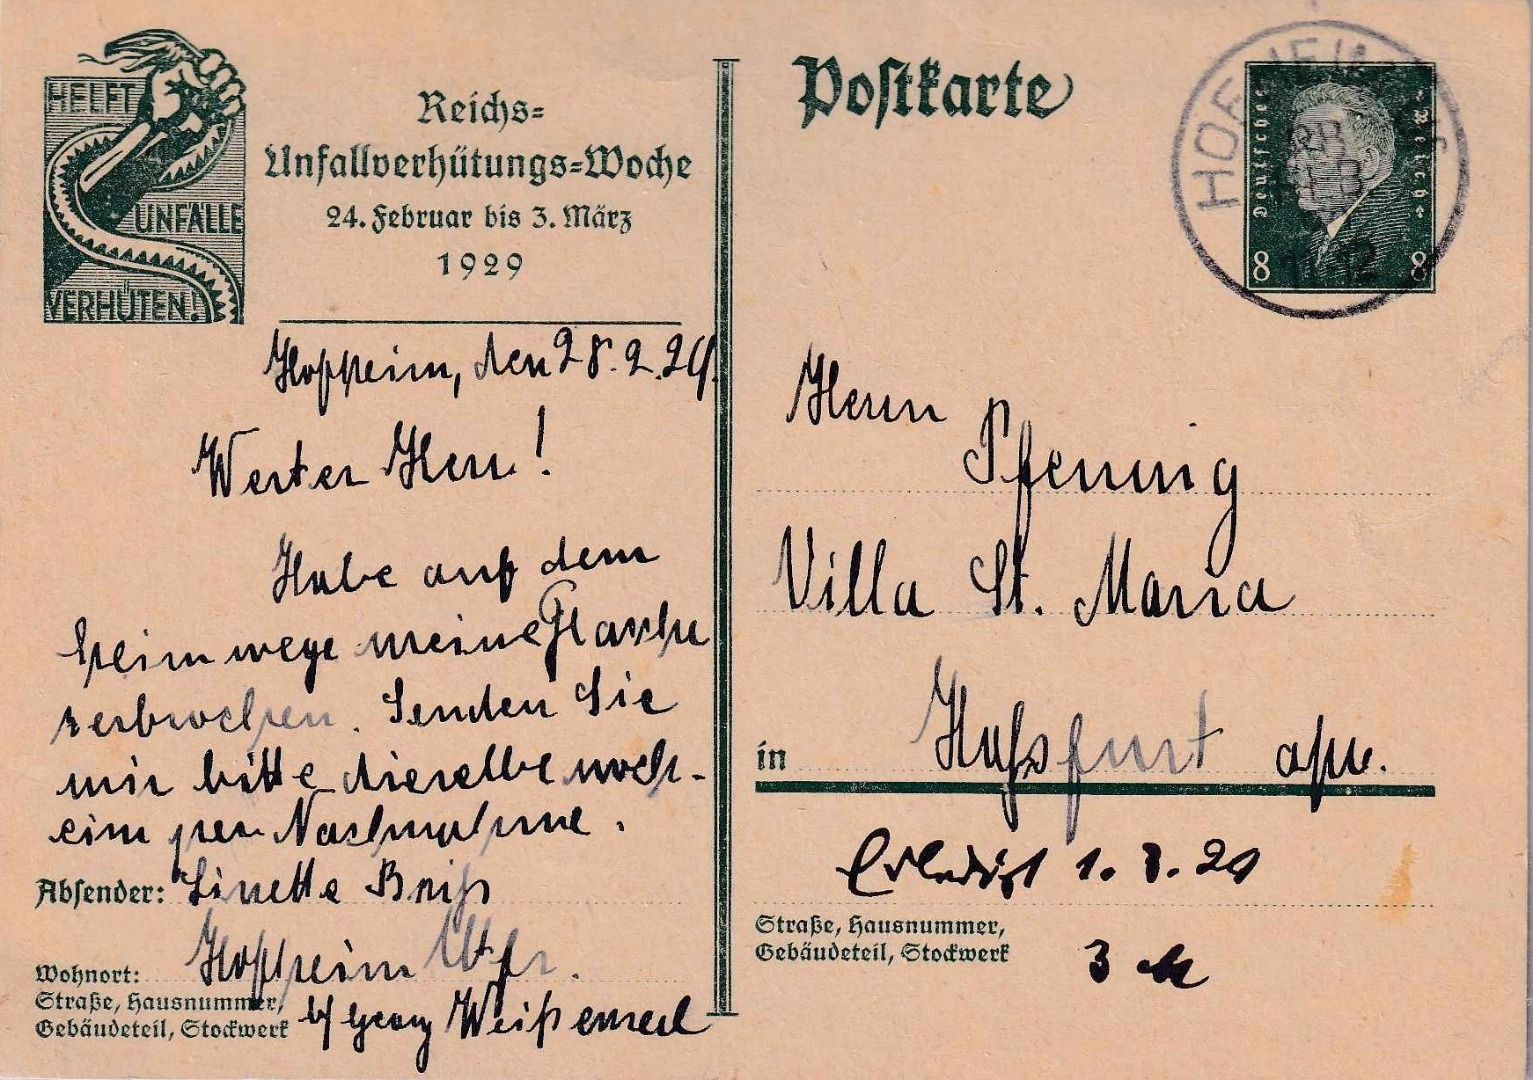 HELFT
UNFÄLLE
VERHÜTEN!
Reichs=
Unfallverhütungs=Woche
24. Februar bis 3. März
1929
Hofheim, den 28.2.29.
Werter Herr!
Habe auf dem
Heimwege meine Flasche
zerbrochen. Senden Sie
mir bitte dieselbe noch-
ein per Nachnahme.
Absender: Linette Breiß
Wohnort: Hofheim Ufr.
Straße, Hausnummer,
Gebäudeteil, Stockwerk
b/ Georg
Postkarte
HOFHEIM
FEB
12
Deutsches Reich
8 8
Herrn
Pfennig
Villa St. Maria
in Hassfurt a/M.
Erledigt 1.3.29
Straße, Hausnummer,
Gebäudeteil, Stockwerk
3 M